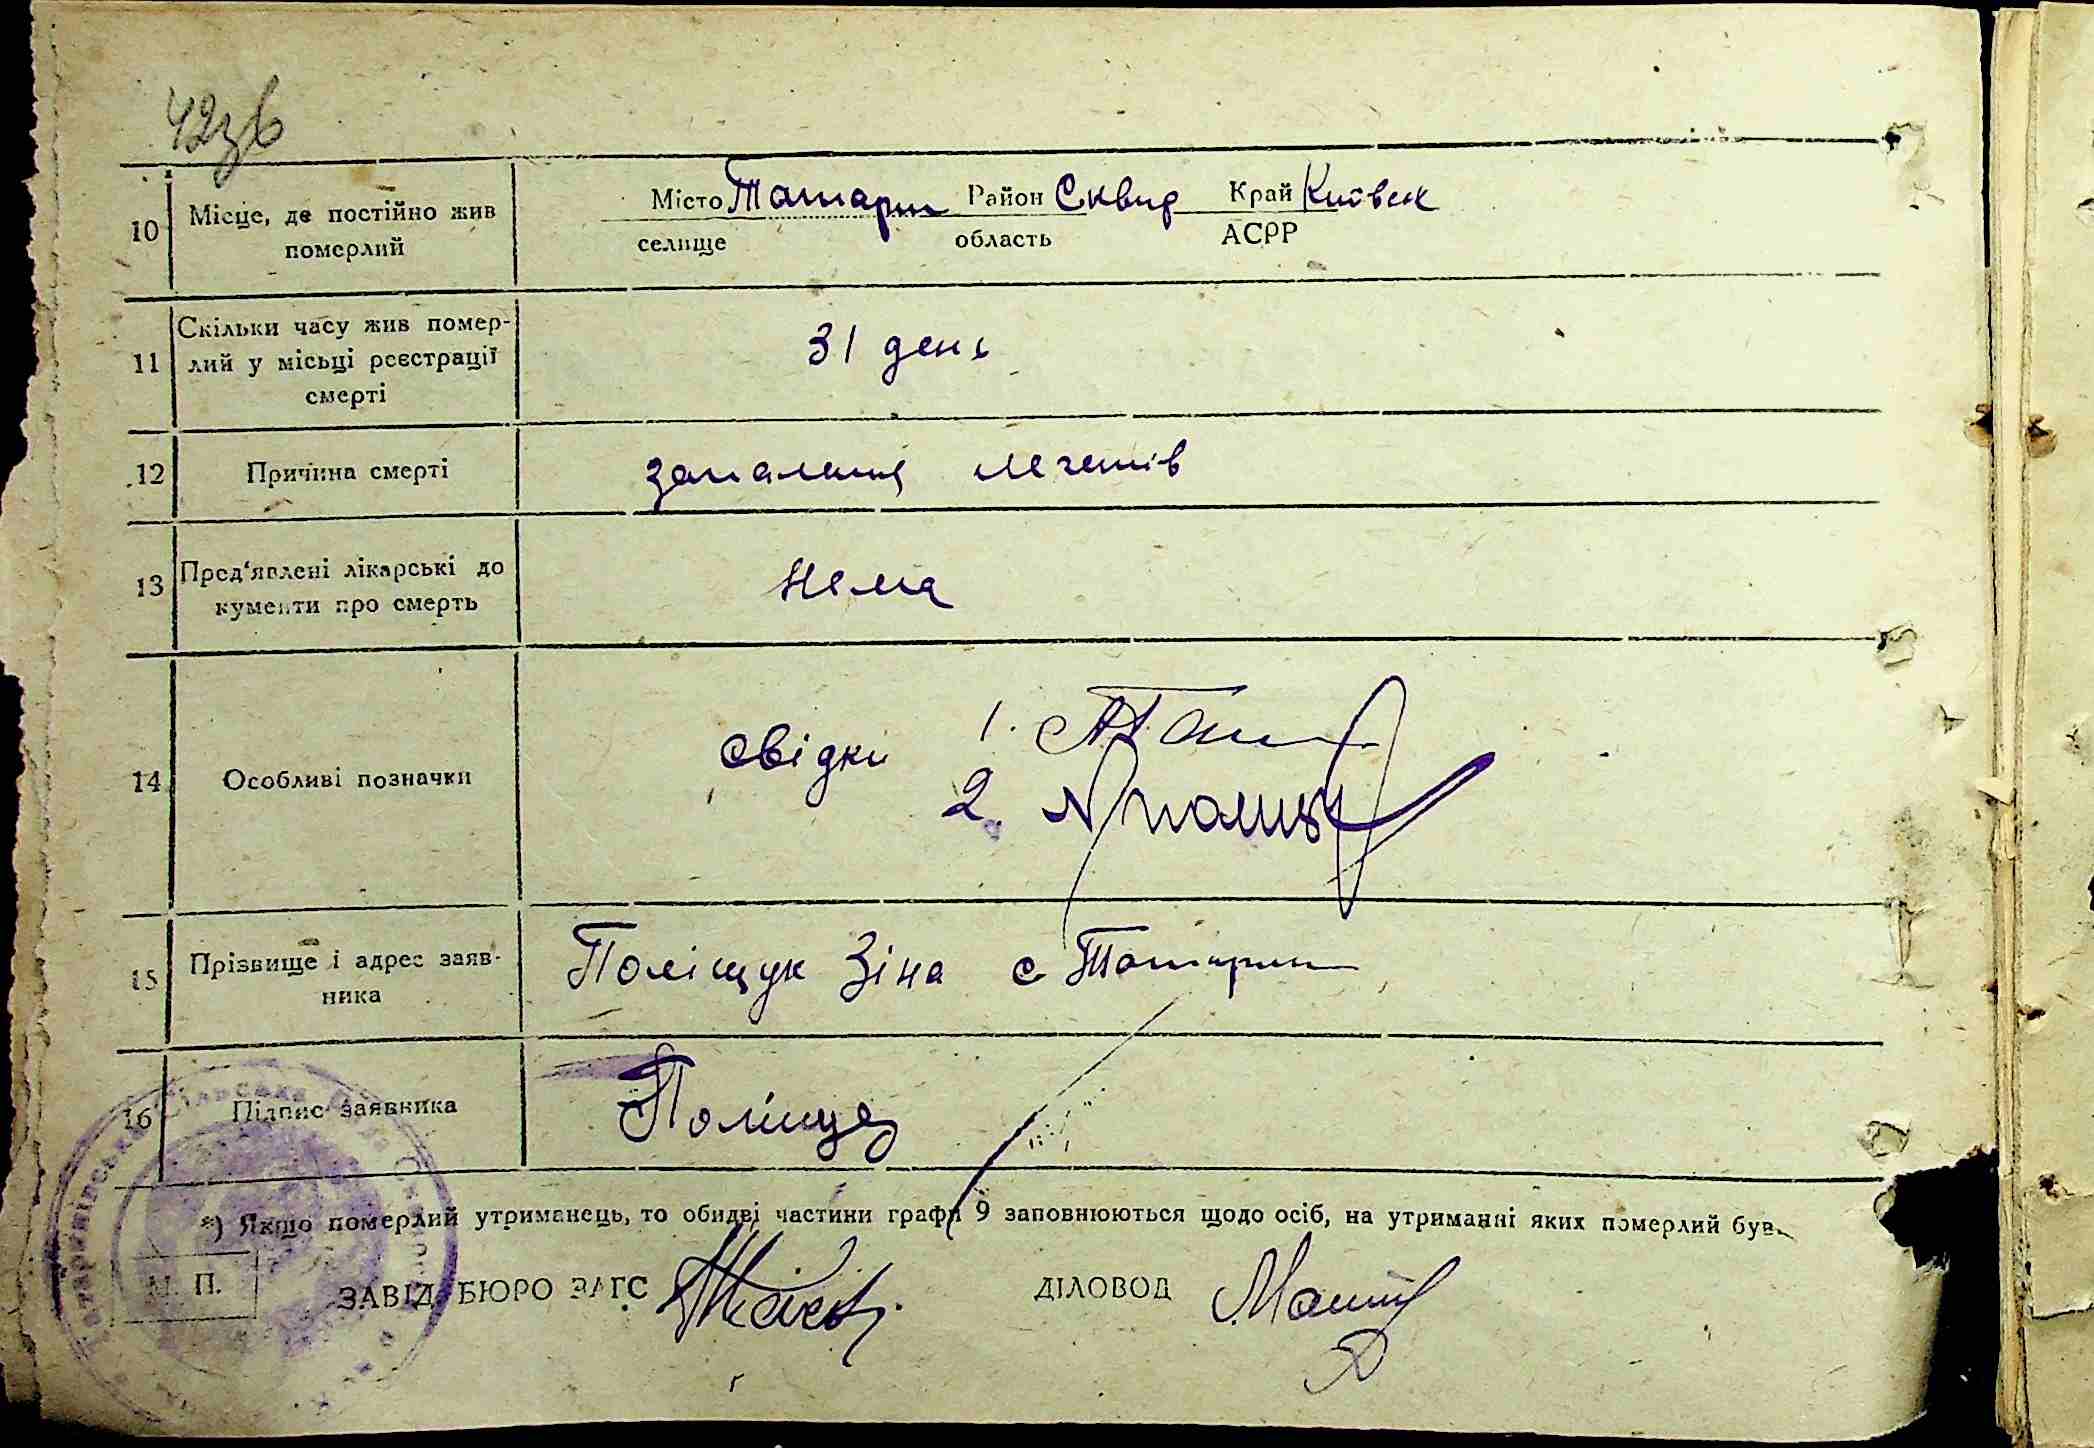 42зв
10 Місце, де постійно жив
померлий
Місто Татарин Район Сквир Край Київськ
селище область АСРР
11 Скільки часу жив помер-
лий у місьці реєстрації
смерті
31 день
12 Причина смерті запалення легенів
13 Пред'явлені лікарські до
кументи про смерть
нема
14 Особливі позначки
свідки 1.
2.
15 Прізвище і адрес заяв-
ника
Поліщук Зіна с Татарин
16 Підпис заявника Поліщу
*) Якщо померлий утриманець, то обидві частини графи 9 заповнюються щодо осіб, на утриманні яких померлий був.
М. П. ЗАВІД. БЮРО ЗАГС ДІЛОВОД